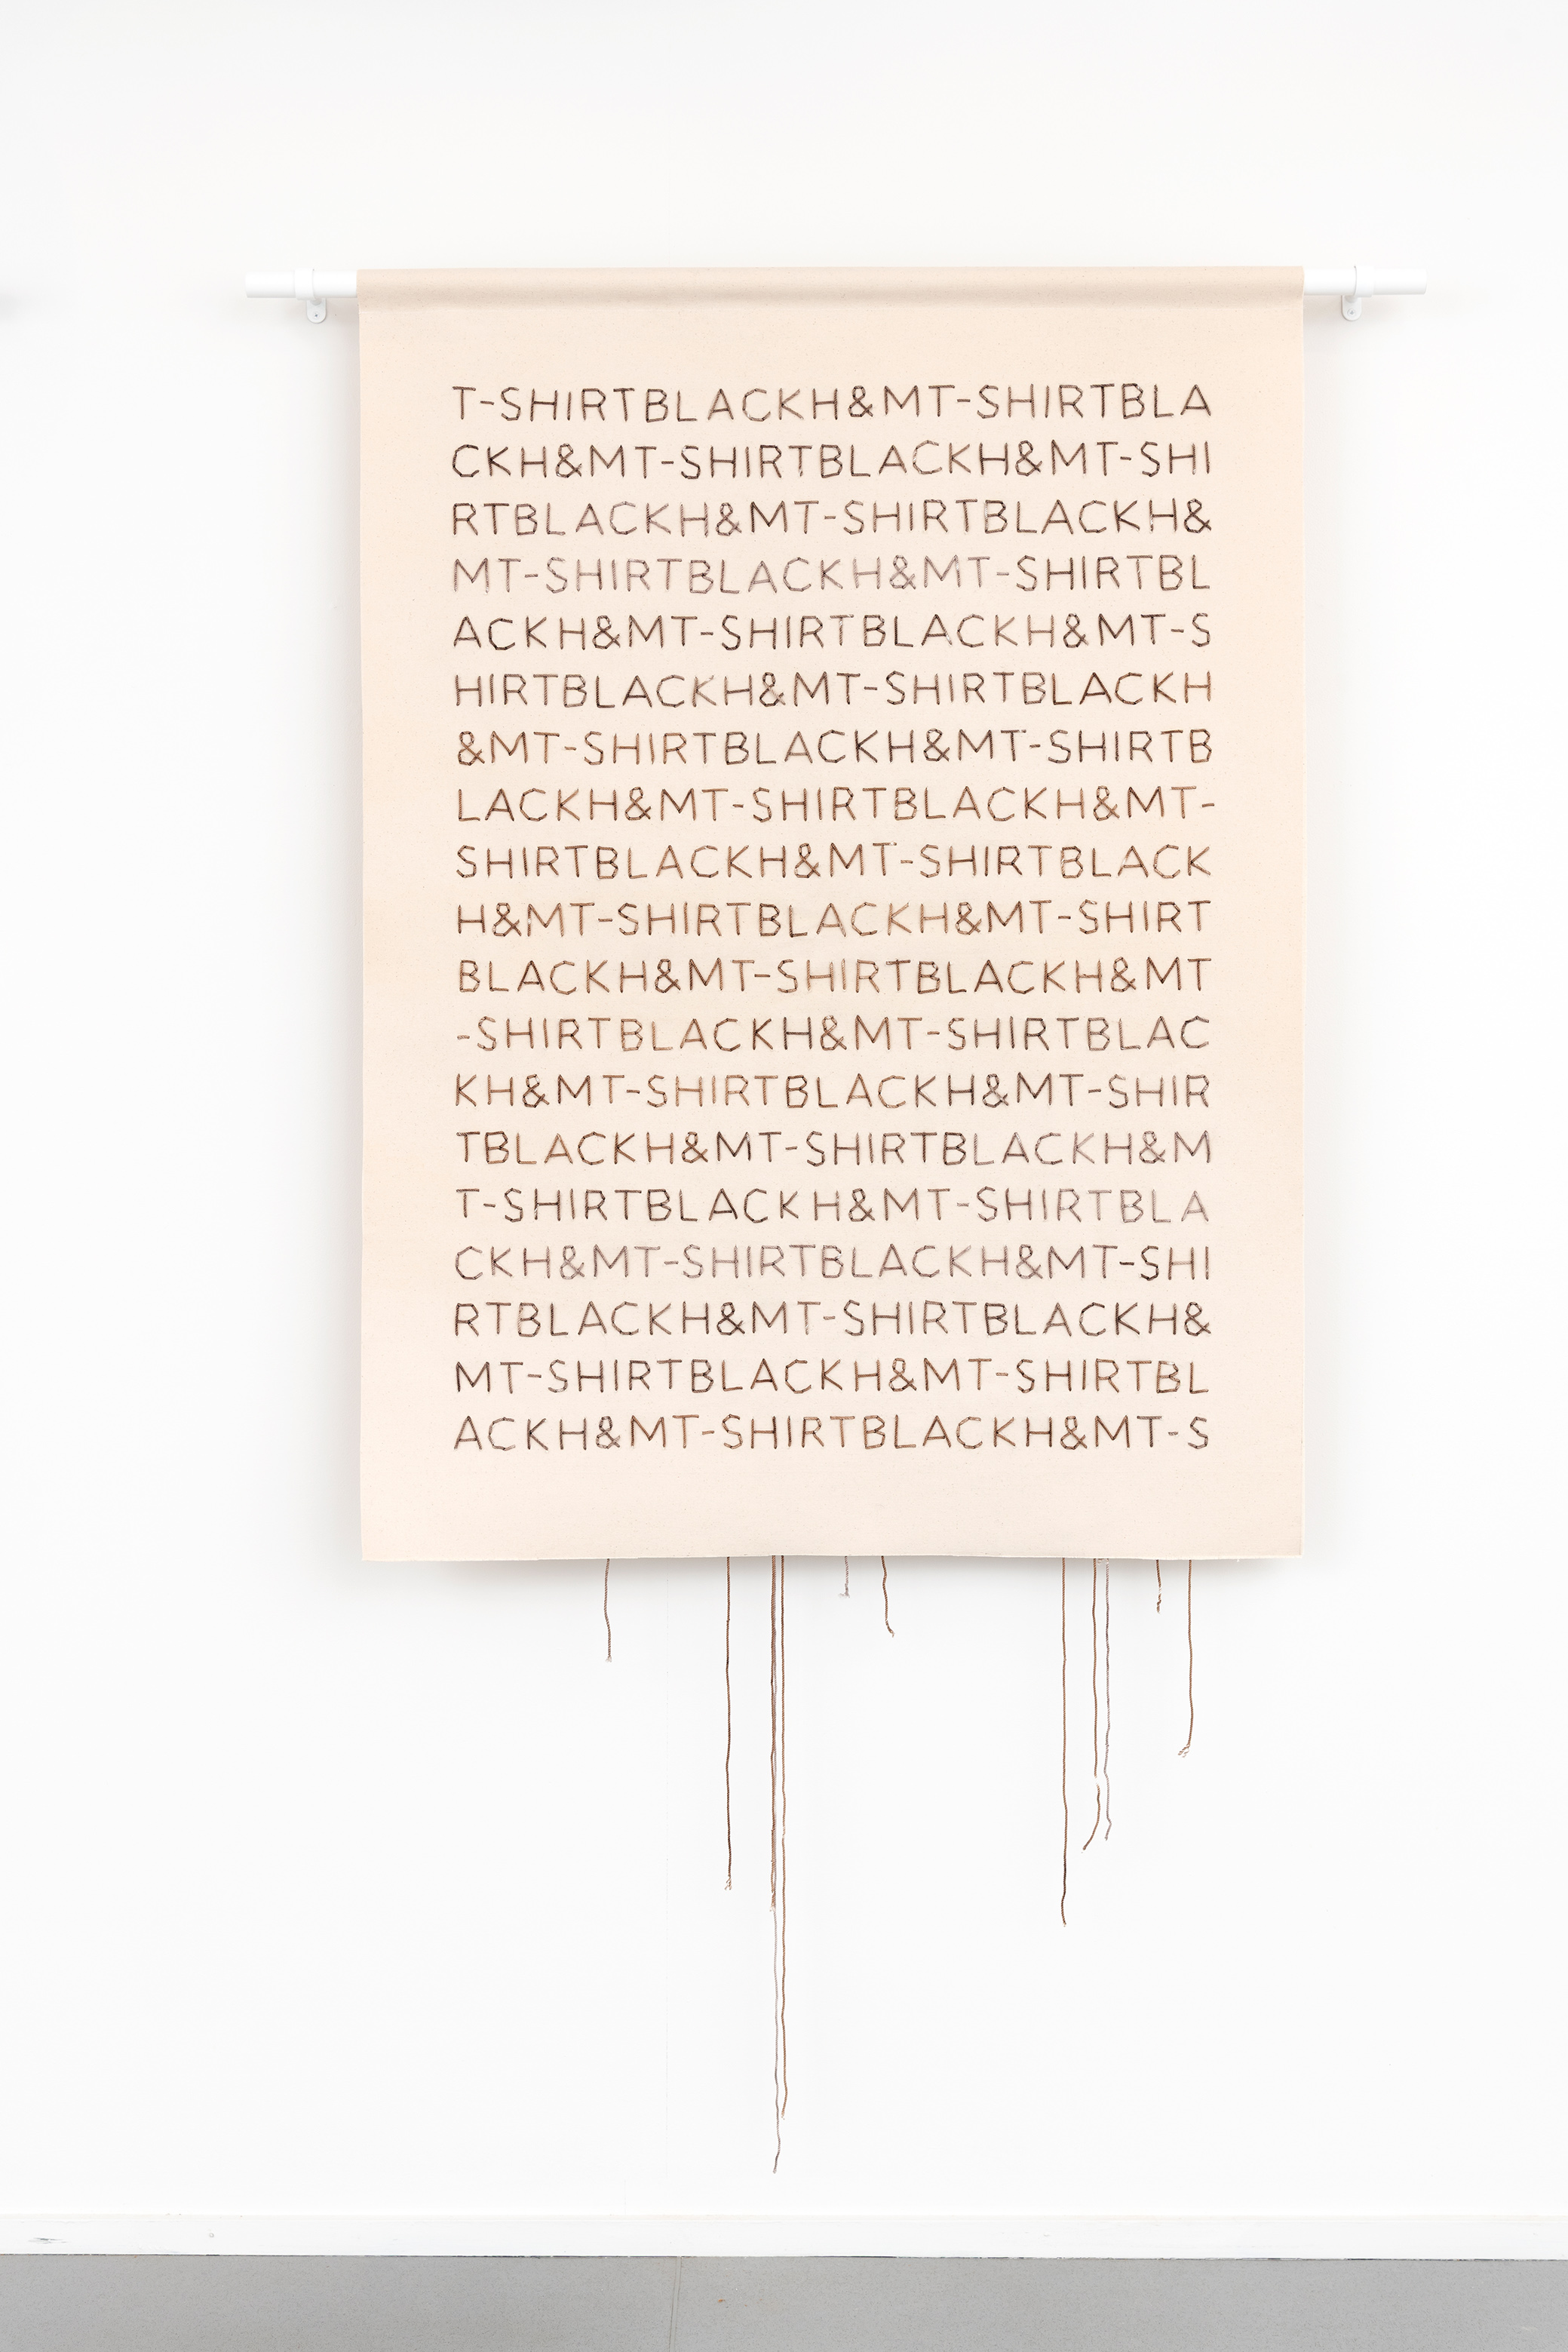 T-SHIRTBLACKH&MT-SHIRTBLA
CKH&MT-SHIRTBLACKH&MT-SHI
RTBLACKH&MT-SHIRTBLACKH&
MT-SHIRTBLACKH&MT-SHIRTBL
ACKH&MT-SHIRTBLACKH&MT-S
HIRTBLACKH&MT-SHIRTBLACKH
&MT-SHIRTBLACKH&MT-SHIRTB
LACKH&MT-SHIRTBLACKH&MT-
SHIRTBLACKH&MT-SHIRTBLACK
H&MT-SHIRTBLACKH&MT-SHIRT
BLACKH&MT-SHIRTBLACKH&MT
-SHIRTBLACKH&MT-SHIRTBLAC
KH&MT-SHIRTBLACKH&MT-SHIR
TBLACKH&MT-SHIRTBLACKH&M
T-SHIRTBLACKH&MT-SHIRTBLA
CKH&MT-SHIRTBLACKH&MT-SHI
RTBLACKH&MT-SHIRTBLACKH&
MT-SHIRTBLACKH&MT-SHIRTBL
ACKH&MT-SHIRTBLACKH&MT-S